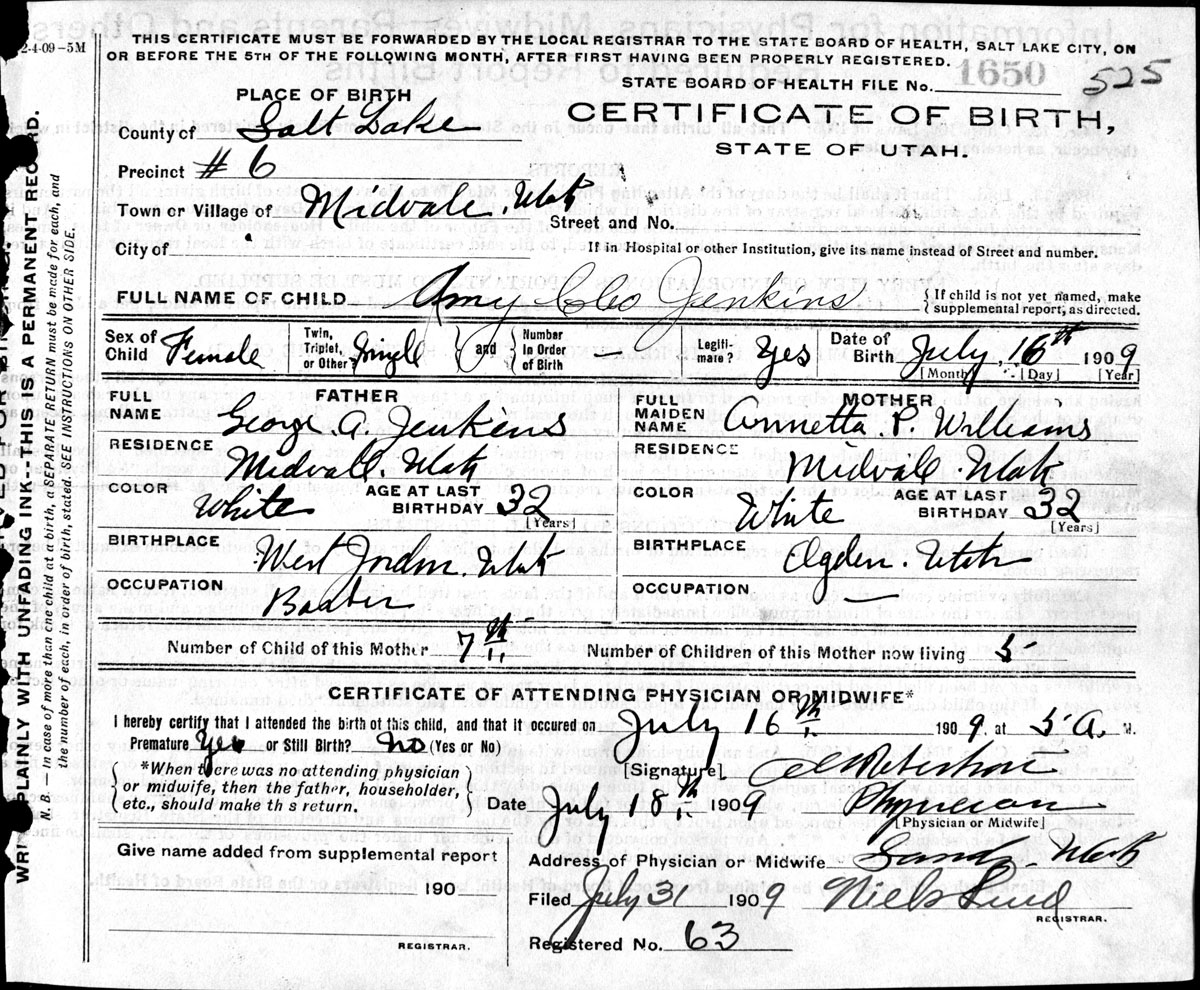 2-4-09-5M
THIS CERTIFICATE MUST BE FORWARDED BY THE LOCAL REGISTRAR TO THE STATE BOARD OF HEALTH, SALT LAKE CITY, ON
OR BEFORE THE 5TH OF THE FOLLOWING MONTH, AFTER FIRST HAVING BEEN PROPERLY REGISTERED.
STATE BOARD OF HEALTH FILE No. 1650 525
PLACE OF BIRTH
CERTIFICATE OF BIRTH,
STATE OF UTAH.
County of Salt Lake
Precinct #6
Town or Village of Midvale. Utah Street and No.
City of If in Hospital or other Institution, give its name instead of Street and number.
FULL NAME OF CHILD Amy Cleo Jenkins { If child is not yet named, make
supplemental report, as directed.
Sex of Child Female Twin, Triplet, or Other? Single and Number in Order of Birth – Legitimate? Yes Date of Birth July 16th 1909
[Month] [Day] [Year]
FATHER MOTHER
FULL NAME George A. Jenkins FULL MAIDEN NAME Annetta P. Williams
RESIDENCE Midvale. Utah RESIDENCE Midvale. Utah
COLOR White AGE AT LAST BIRTHDAY 32 [Years] COLOR White AGE AT LAST BIRTHDAY 32 [Years]
BIRTHPLACE West Jordan. Utah BIRTHPLACE Ogden. Utah
OCCUPATION Barber OCCUPATION —
Number of Child of this Mother 7th Number of Children of this Mother now living 5
CERTIFICATE OF ATTENDING PHYSICIAN OR MIDWIFE*
I hereby certify that I attended the birth of this child, and that it occured on July 16th 1909. at 5 A. M.
Premature Yes or Still Birth? No (Yes or No)
*When there was no attending physician
or midwife, then the father, householder,
etc., should make this return.
[Signature] Robertson
Date July 18th 1909 Physician
[Physician or Midwife]
Give name added from supplemental report
190
REGISTRAR.
Address of Physician or Midwife Sandy. Utah
Filed July 31 1909 Niels Lind
REGISTRAR.
Registered No. 63
WRITE PLAINLY WITH UNFADING INK--THIS IS A PERMANENT RECORD.
N. B. — In case of more than one child at a birth, a SEPARATE RETURN must be made for each, and
the number of each, in order of birth, stated. SEE INSTRUCTIONS ON OTHER SIDE.